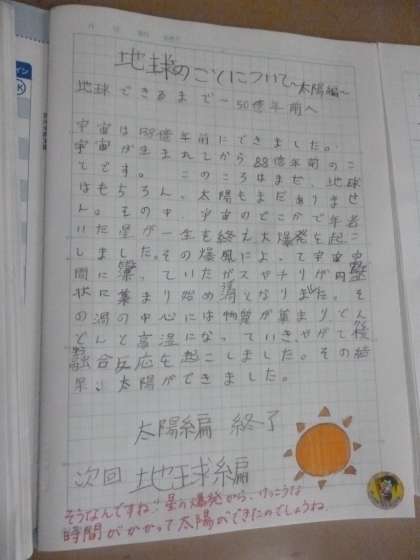 地球のごくについて〜太陽編〜
地球できるまで－50億年前へ
宇宙は138億年前にできました。
宇宙が生まれてから88億年前のこ
とです。このころはまだ、地球
はもちろん、太陽もまだありませ
ん。その中、宇宙のどこかで年老
いた星が一生を終え大爆発を起こ
しました。その爆風によって宇宙空
間に漂っていたガスやチリが円盤
状に集まり始め渦となりました。そ
の渦の中心には物質が集まりどん
どんと高温になっていき、やがて核
融合反応を起こしました。その結
果、太陽ができました。
太陽編 終了
次回 地球編
そうなんですね。星の爆発から、けっこうな
時間がかかって太陽ができたのでしょうね。